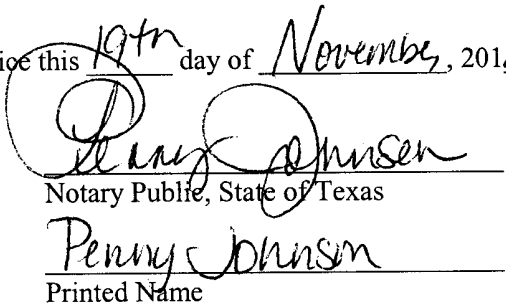 ice this 19th day of November, 201
Penny Johnson
Notary Public, State of Texas
Penny Johnson
Printed Name